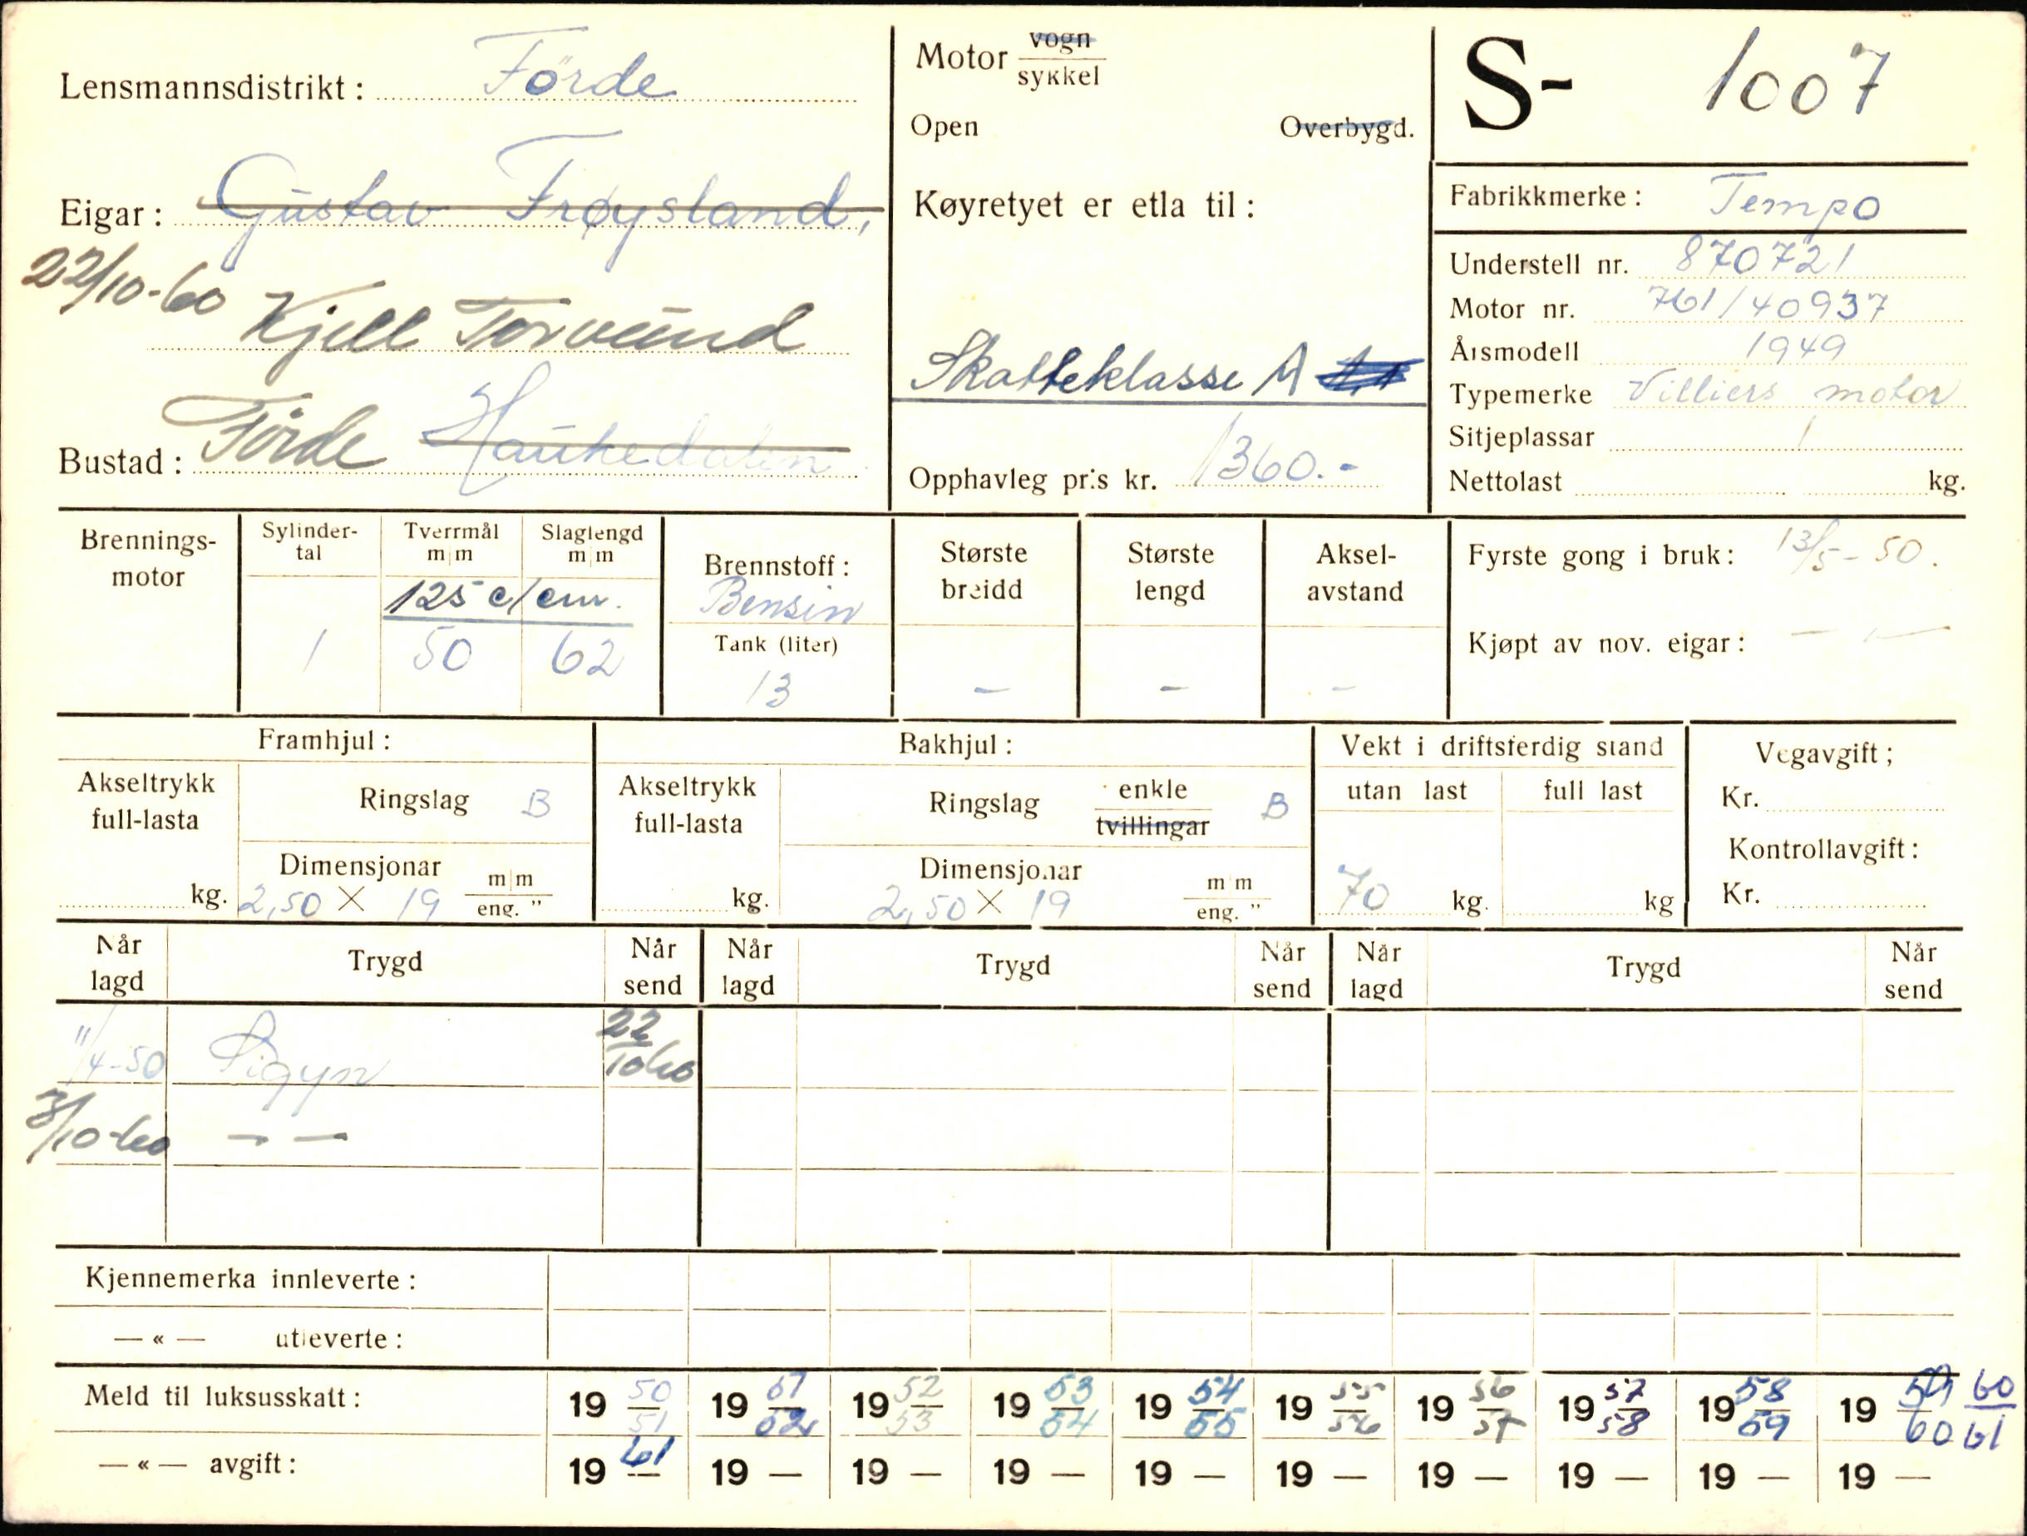 Lensmannsdistrikt : Førde
Eigar : Gustav Frøysland,
22/10-60 Kjell Torvund
Bustad : Førde Haukedalen
Motor vogn
sykkel
Open Overbygd.
Køyretyet er etla til :
Skatteklasse A
Opphavleg pris kr. 1360.-
S- 1007
Fabrikkmerke : Tempo
Understell nr. 870721
Motor nr. 761/40937
Årsmodell 1949
Typemerke Villiers motor
Sitjeplassar 1
Nettolast kg.
Brennings-
motor
Sylinder-
tal
1
Tverrmål
m|m
Slaglengd
m|m
125 c/cm.
50 62
Brennstoff :
Bensin
Tank (liter)
13
Største
breidd
-
Største
lengd
-
Aksel-
avstand
-
Fyrste gong i bruk : 13/5-50.
Kjøpt av nov. eigar : — " —
Framhjul :
Akseltrykk
full-lasta
kg.
Ringslag B
Dimensjonar
2,50 X 19 m|m
eng. "
Bakhjul :
Akseltrykk
full-lasta
kg.
Ringslag enkle B
tvillingar
Dimensjonar
2,50 X 19 m|m
eng. "
Vekt i driftsferdig stand
utan last full last
70 kg. kg
Vegavgift ;
Kr.
Kontrollavgift :
Kr.
Når
lagd Trygd Når
send Når
lagd Trygd Når
send Når
lagd Trygd Når
send
11/4-50 Sigyn 22/10 60
3/10-60 — —
Kjennemerka innleverte :
— « — utleverte :
Meld til luksusskatt : 19 50/51 19 51/52 19 52/53 19 53/54 19 54/55 19 55/56 19 56/57 19 57/58 19 58/59 19 59/60 60/61
— « — avgift : 19 61 19 — 19 — 19 — 19 — 19 — 19 — 19 — 19 — 19 —